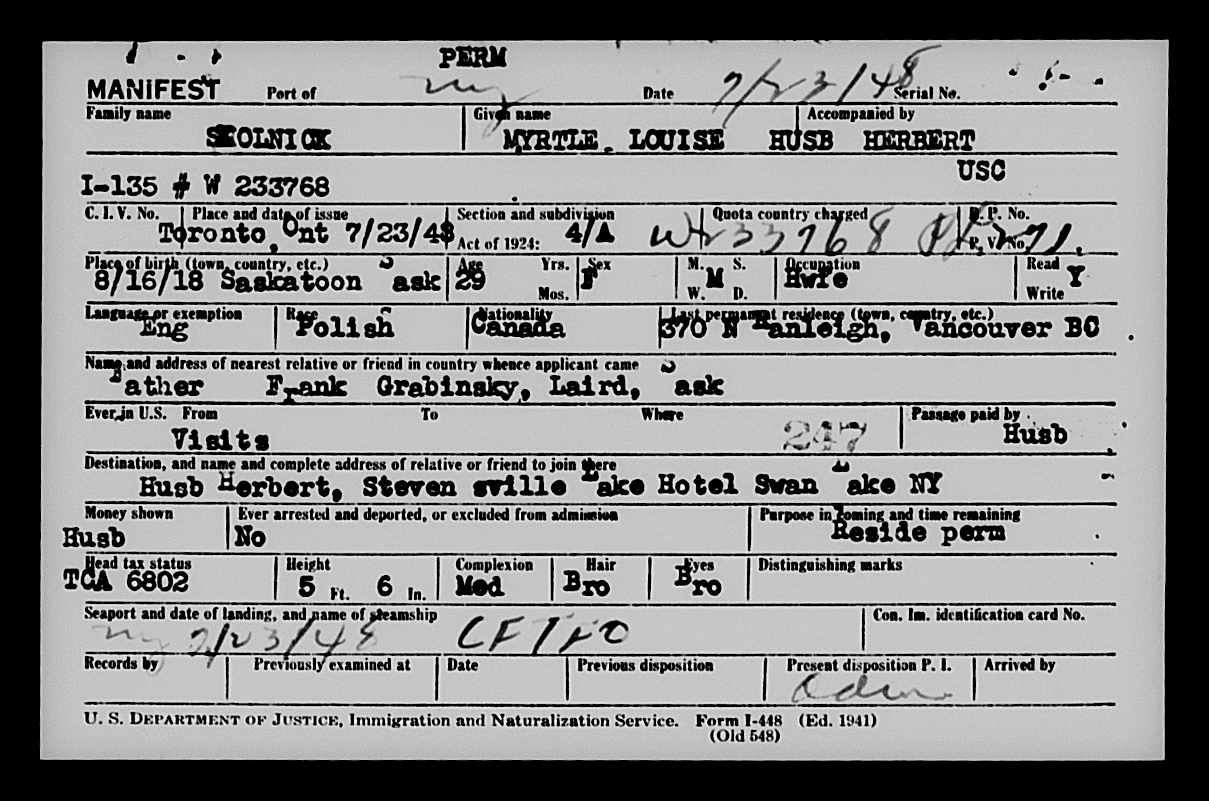 PERM
MANIFEST Port of NY Date 7/23/48 Serial No.
Family name Given name Accompanied by
SKOLNICK MYRTLE LOUISE HUSB HERBERT
I-135 # W 233768 USC
C. I. V. No. Place and date of issue Section and subdivision Quota country charged P. P. No.
Toronto, Ont 7/23/48 Act of 1924: 4/A W 233768 R. V. No.
Place of birth (town, country, etc.) Age Yrs. Sex M. S. Occupation Read
8/16/18 Saskatoon Sask 29 Mos. F M W. D. Hwfe Write Y
Language or exemption Race Nationality Last permanent residence (town, country, etc.)
Eng Polish Canada 370 N Ranleigh, Vancouver BC
Name and address of nearest relative or friend in country whence applicant came
Father Frank Grabinsky, Laird, Sask
Ever in U.S. From To Where Passage paid by
Visits 247 Husb
Destination, and name and complete address of relative or friend to join there
Husb Herbert, Steven sville Lake Hotel Swan Lake NY
Money shown Ever arrested and deported, or excluded from admission Purpose in coming and time remaining
Husb No Reside perm
Head tax status Height Complexion Hair Eyes Distinguishing marks
TCA 6802 5 Ft. 6 In. Med Bro Bro
Seaport and date of landing, and name of steamship Con. Im. identification card No.
NY 7/23/48
Records by Previously examined at Date Previous disposition Present disposition P. I. Arrived by
Adm
U. S. DEPARTMENT OF JUSTICE, Immigration and Naturalization Service. Form I-448 (Ed. 1941)
(Old 548)